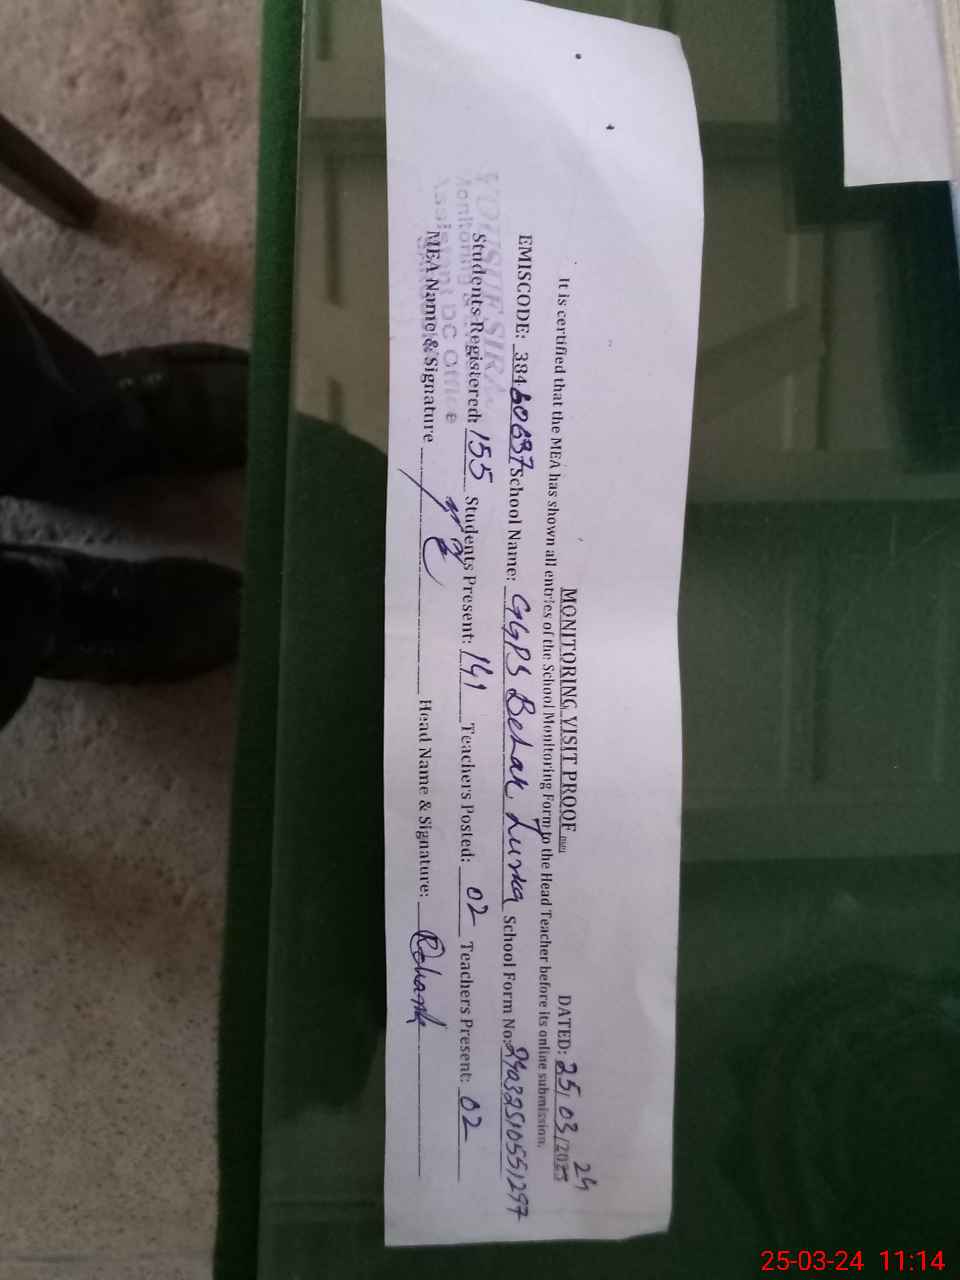 MONITORING VISIT PROOF
DATED: 25/03/2023 24
It is certified that the MEA has shown all entries of the School Monitoring Form to the Head Teacher before its online submission.
EMISCODE: 38460637 School Name: GGPS Behak Lurka School Form No: 24032510551297
Students Registered: 155 Students Present: 141 Teachers Posted: 02 Teachers Present: 02
MEA Name & Signature Head Name & Signature:
Monitoring &
Assistant DC Office
25-03-24 11:14